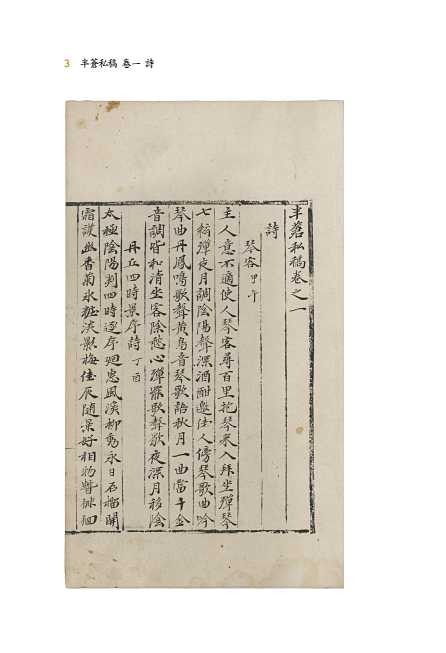 3 半蒼私稿 卷一 詩
半蒼私稿卷之一
詩
琴客 甲午
主人意不適使人琴客尋百里抱琴來入拜坐彈琴
七絃彈夜月調陰陽聲深酒酣邀佳人傍琴歌曲吟
琴曲丹鳳鳴歌聲黃鳥音琴歌詒秋月一曲當千金
音調皆和清坐客陰愁心彈罷歌聲歇夜深月移陰
丹丘四時景序詩 丁酉
太極陰陽判四時逐序廻惠風溪柳動永日石榴開
霜護幽香菊氷粧淡影梅佳辰隨景好相物暫徘徊